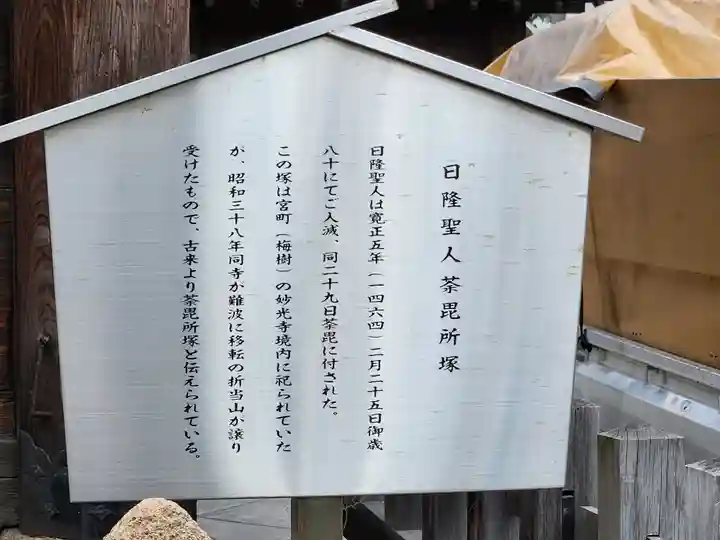 日隆聖人荼毘所塚
日隆聖人は寛正五年（一四六四）二月二十五日御歳
八十にてご入滅、同二十九日荼毘に付された。
この塚は宮町（梅樹）の妙光寺境内に祀られていた
が、昭和三十八年同寺が難波に移転の折当山が譲り
受けたもので、古来より荼毘所塚と伝えられている。